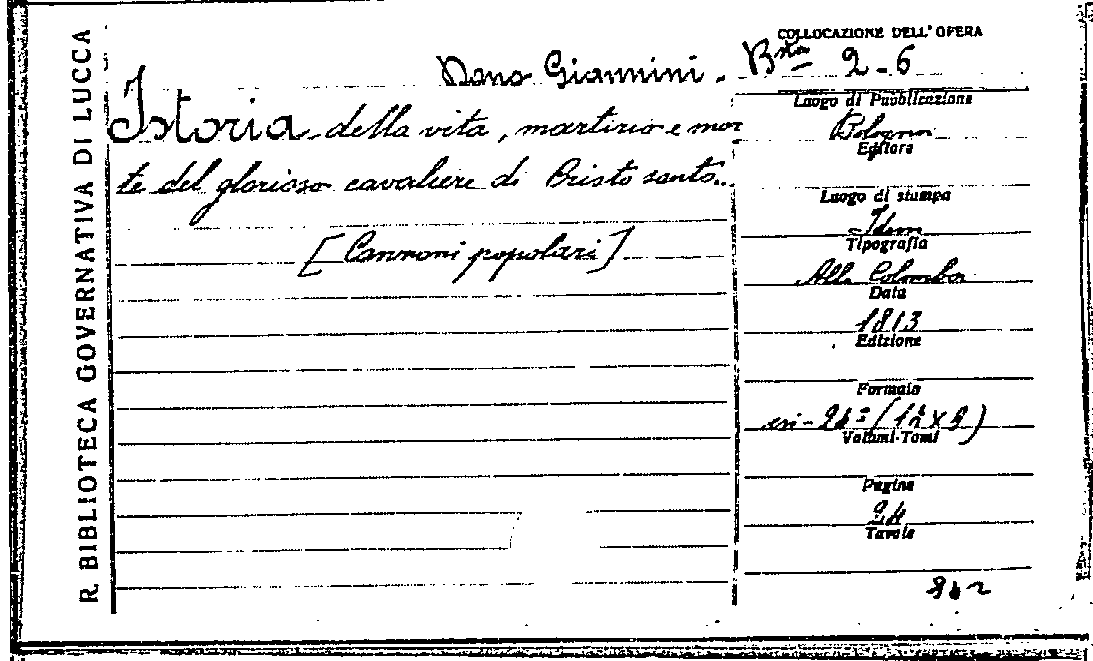 R. BIBLIOTECA GOVERNATIVA DI LUCCA
Dono Giannini.
Istoria della vita, martirio e mor
te del glorioso cavaliere di Cristo santo...
[Canzoni popolari]
COLLOCAZIONE DELL'OPERA
Bta 2-6
Luogo di Pubblicazione
Bologna
Editore
Luogo di stampa
Idem
Tipografia
Alla Colomba
Data
1813
Edizione
Formato
in-24°
Volumi-Tomi
Pagine
24
Tavole